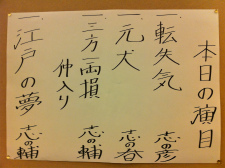 本日の演目
一 転失気 志の彦
一 元犬 志の春
一 三方一両損 志の輔
仲入り
一 江戸の夢 志の輔